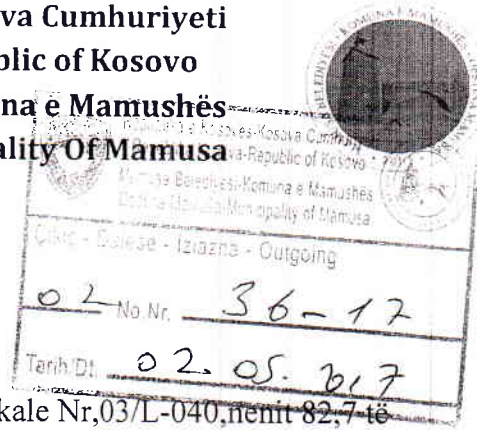 va Cumhuriyeti
blic of Kosovo
na e Mamushës
ality Of Mamusa
-Kosova
-Republic of Kosovo
Mamuşa Belediyesi-Komuna e Mamushës
Municipality of Mamusa
Iziazna - Outgoing
02 No.Nr. 36-17
Tarih/Dt. 02. 05.
kale Nr,03/L-040,nenit 82,7 të